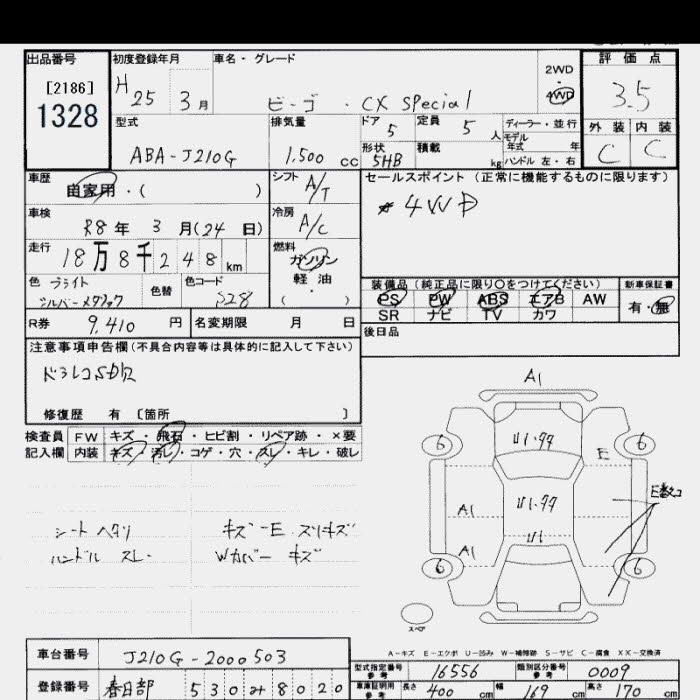 出品番号 初度登録年月 車名・グレード 評価点
[2186] H 25 3月 ビーゴ ・ CX SPecial 2WD 4WD 3.5
1328 型式 排気量 ドア 5 定員 5人 ディーラー・並行 外装 内装
モデル年式 年
ABA-J210G 1.500 cc 形状 5HB 積載 kg ハンドル 左・右 C C
車歴 自家用・( ) シフト A/T セールスポイント(正常に機能するものに限ります)
車検 R8年 3月(24日) 冷房 A/C 4WD
走行 18万8千248km 燃料 ガソリン 軽油 ( ・ )
色 ブライト シルバーメタリック 色替 色コード S28
装備品(純正品に限り〇をつけてください) 新車保証書
PS PW ABS エアB AW 有・無
SR ナビ TV カワ
R券 9,410 円 名変期限 月 日 後日品
注意事項申告欄(不具合内容等は具体的に記入して下さい)
修復歴 有 〔箇所 〕
検査員 FW キズ・飛石・ヒビ割・リペア跡・×要
記入欄 内装 キズ・汚レ・コゲ・穴・スレ・キレ・破レ
シート ヘタリ キズ ーE スリキズ
ハンドル スレー Wカバー キズ
A1
6 6
E
A1
U1
A1
6 6
スペア
A-キズ E-エクボ U-凹み W-補修跡 S-サビ C-腐食 XX-交換済
車台番号 J210G-2000503
型式指定番号 参考 16556 類別区分番号 参考 0009
登録番号 春日部 530 8020
車庫証明用 参考 長さ 400 cm 幅 169 cm 高さ 170 cm